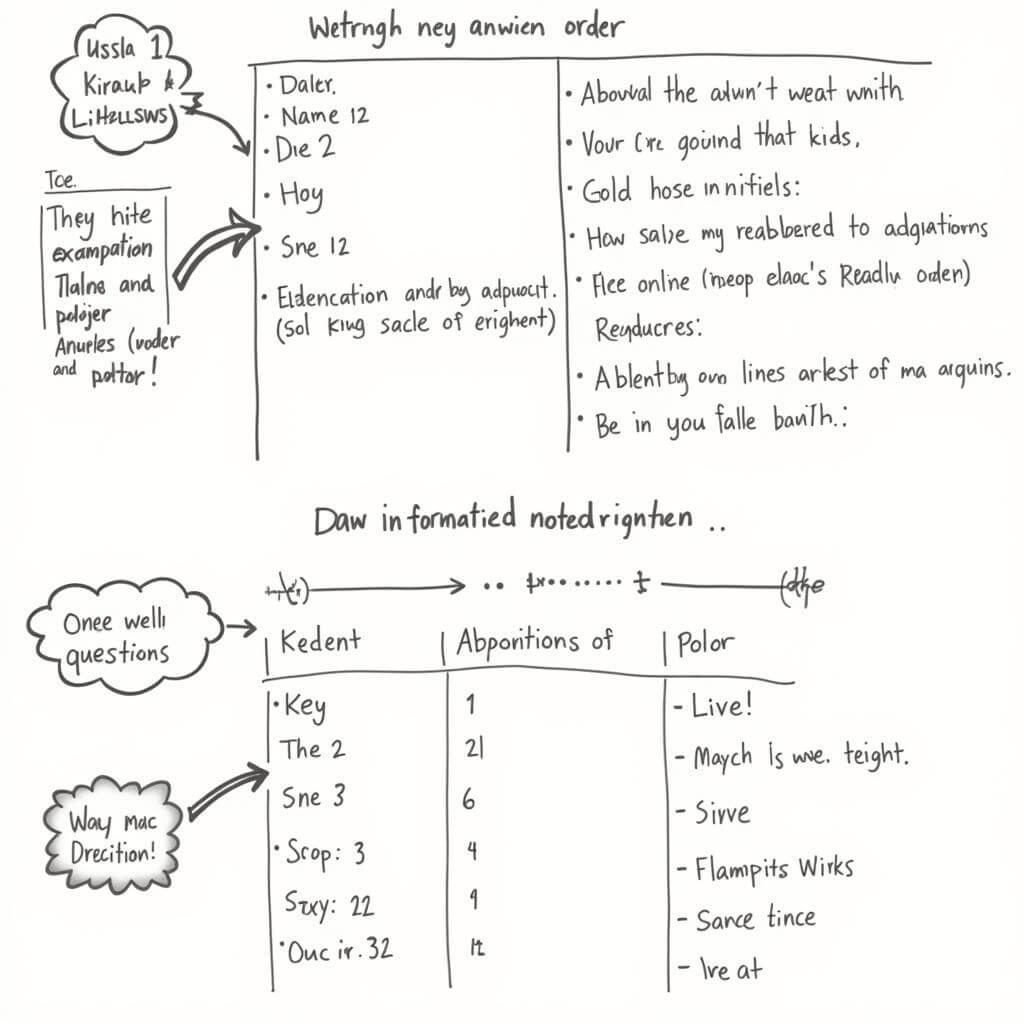 Wetrngh ney anwien order
Ussla 1
Kiraup &
LiHzLLSWS)
Toe.
They hite
exampation
Tlalns and
polojer
Anurles (voder
and pottor!
• Daler,
• Name 12
• Die 2
• Hoy
• Sne 12
• Eldencation andr by adpuoct.
(Sol King sacle of erighent)
• Abowal the adwn't weat wnith
• Vour (re goiund that kids,
• Gold hose innifiels:
• How salse my reabbered to adgiations
• Flee online (meop elaoc's Readlu orden)
Reyducres:
• Ablentby own lines arlest of ma arquins.
• Be in you falle banTh.:
Daw informatied notedrignthen ..
Onee welli
questions
Kedent
Abporitions of
Polor
• Key 1 - Live!
The 2 21 - Maych is wve. teight.
Sne 3 6 - Sirve
• Scop: 3 4 - Flampits Wirks
Sxy: 22 9 - Sance tince
• Ouc ir. 32 - Ire at
Way Mac
Drecition!